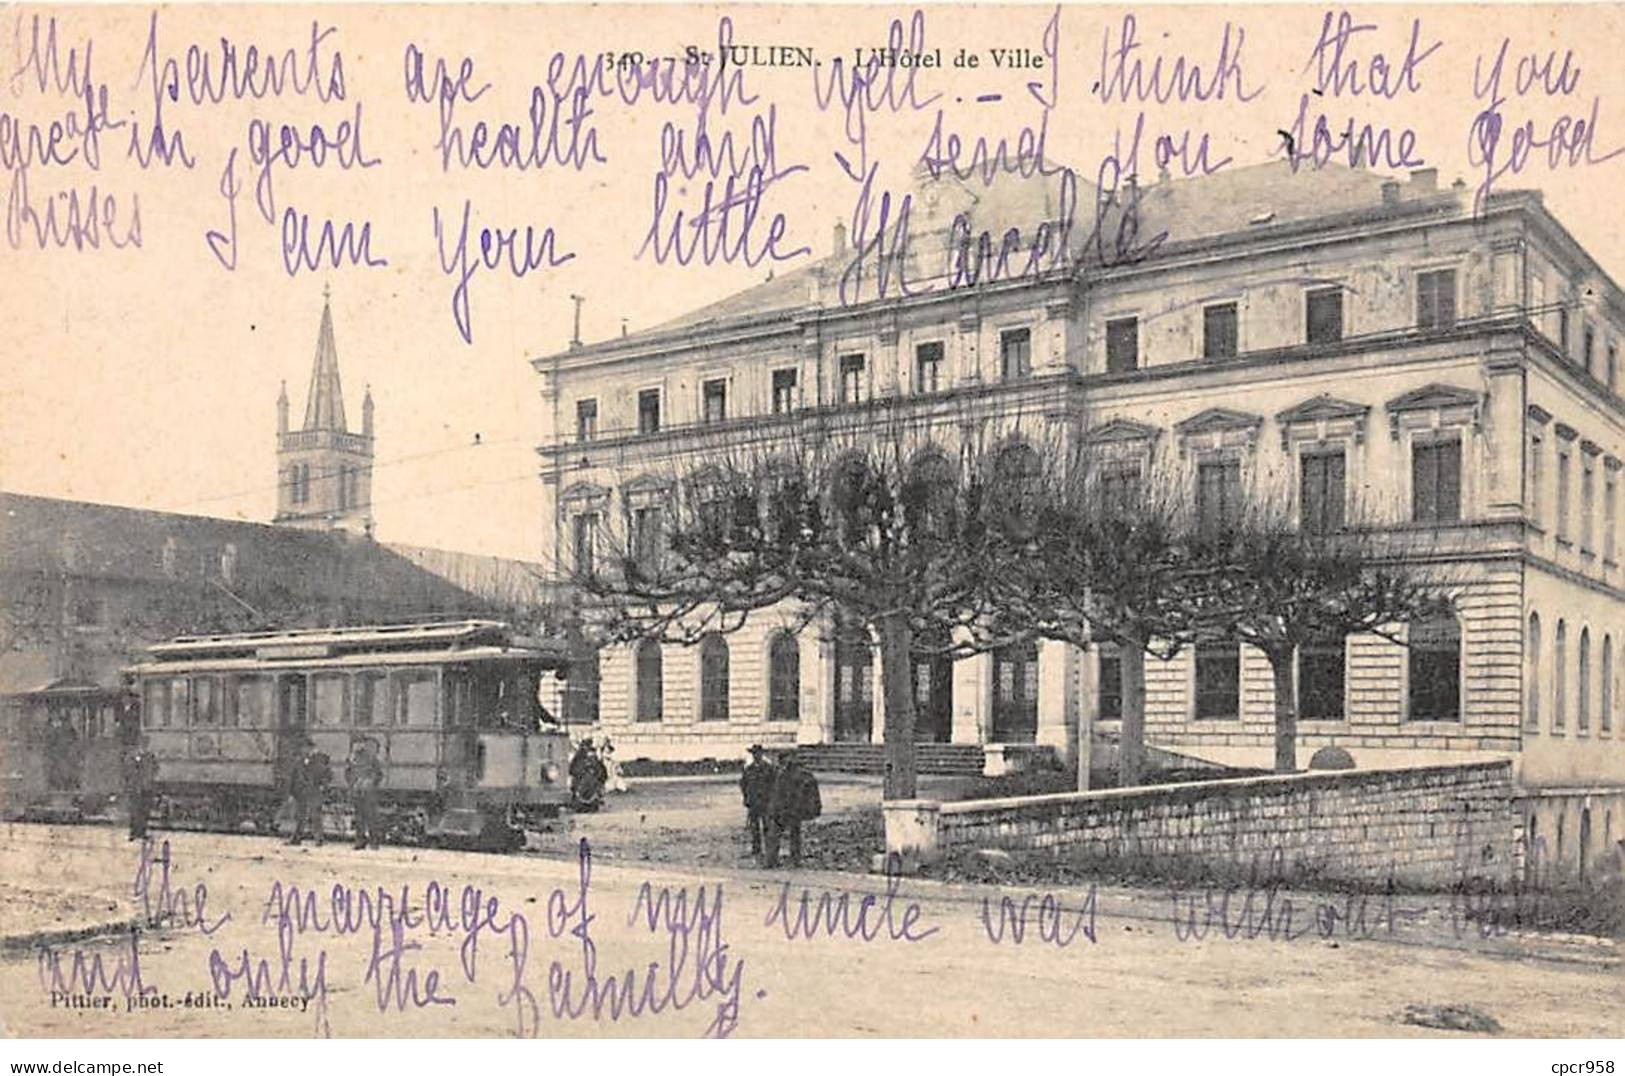 340. - St JULIEN. - L'Hôtel de Ville
My parents are enough well. - I think that you
are all in good health and I send you some good
Kisses I am your little Marcelle
the marriage of my uncle was without ball
and only the familly.
Pittier, phot.-édit., Annecy
cpcr958